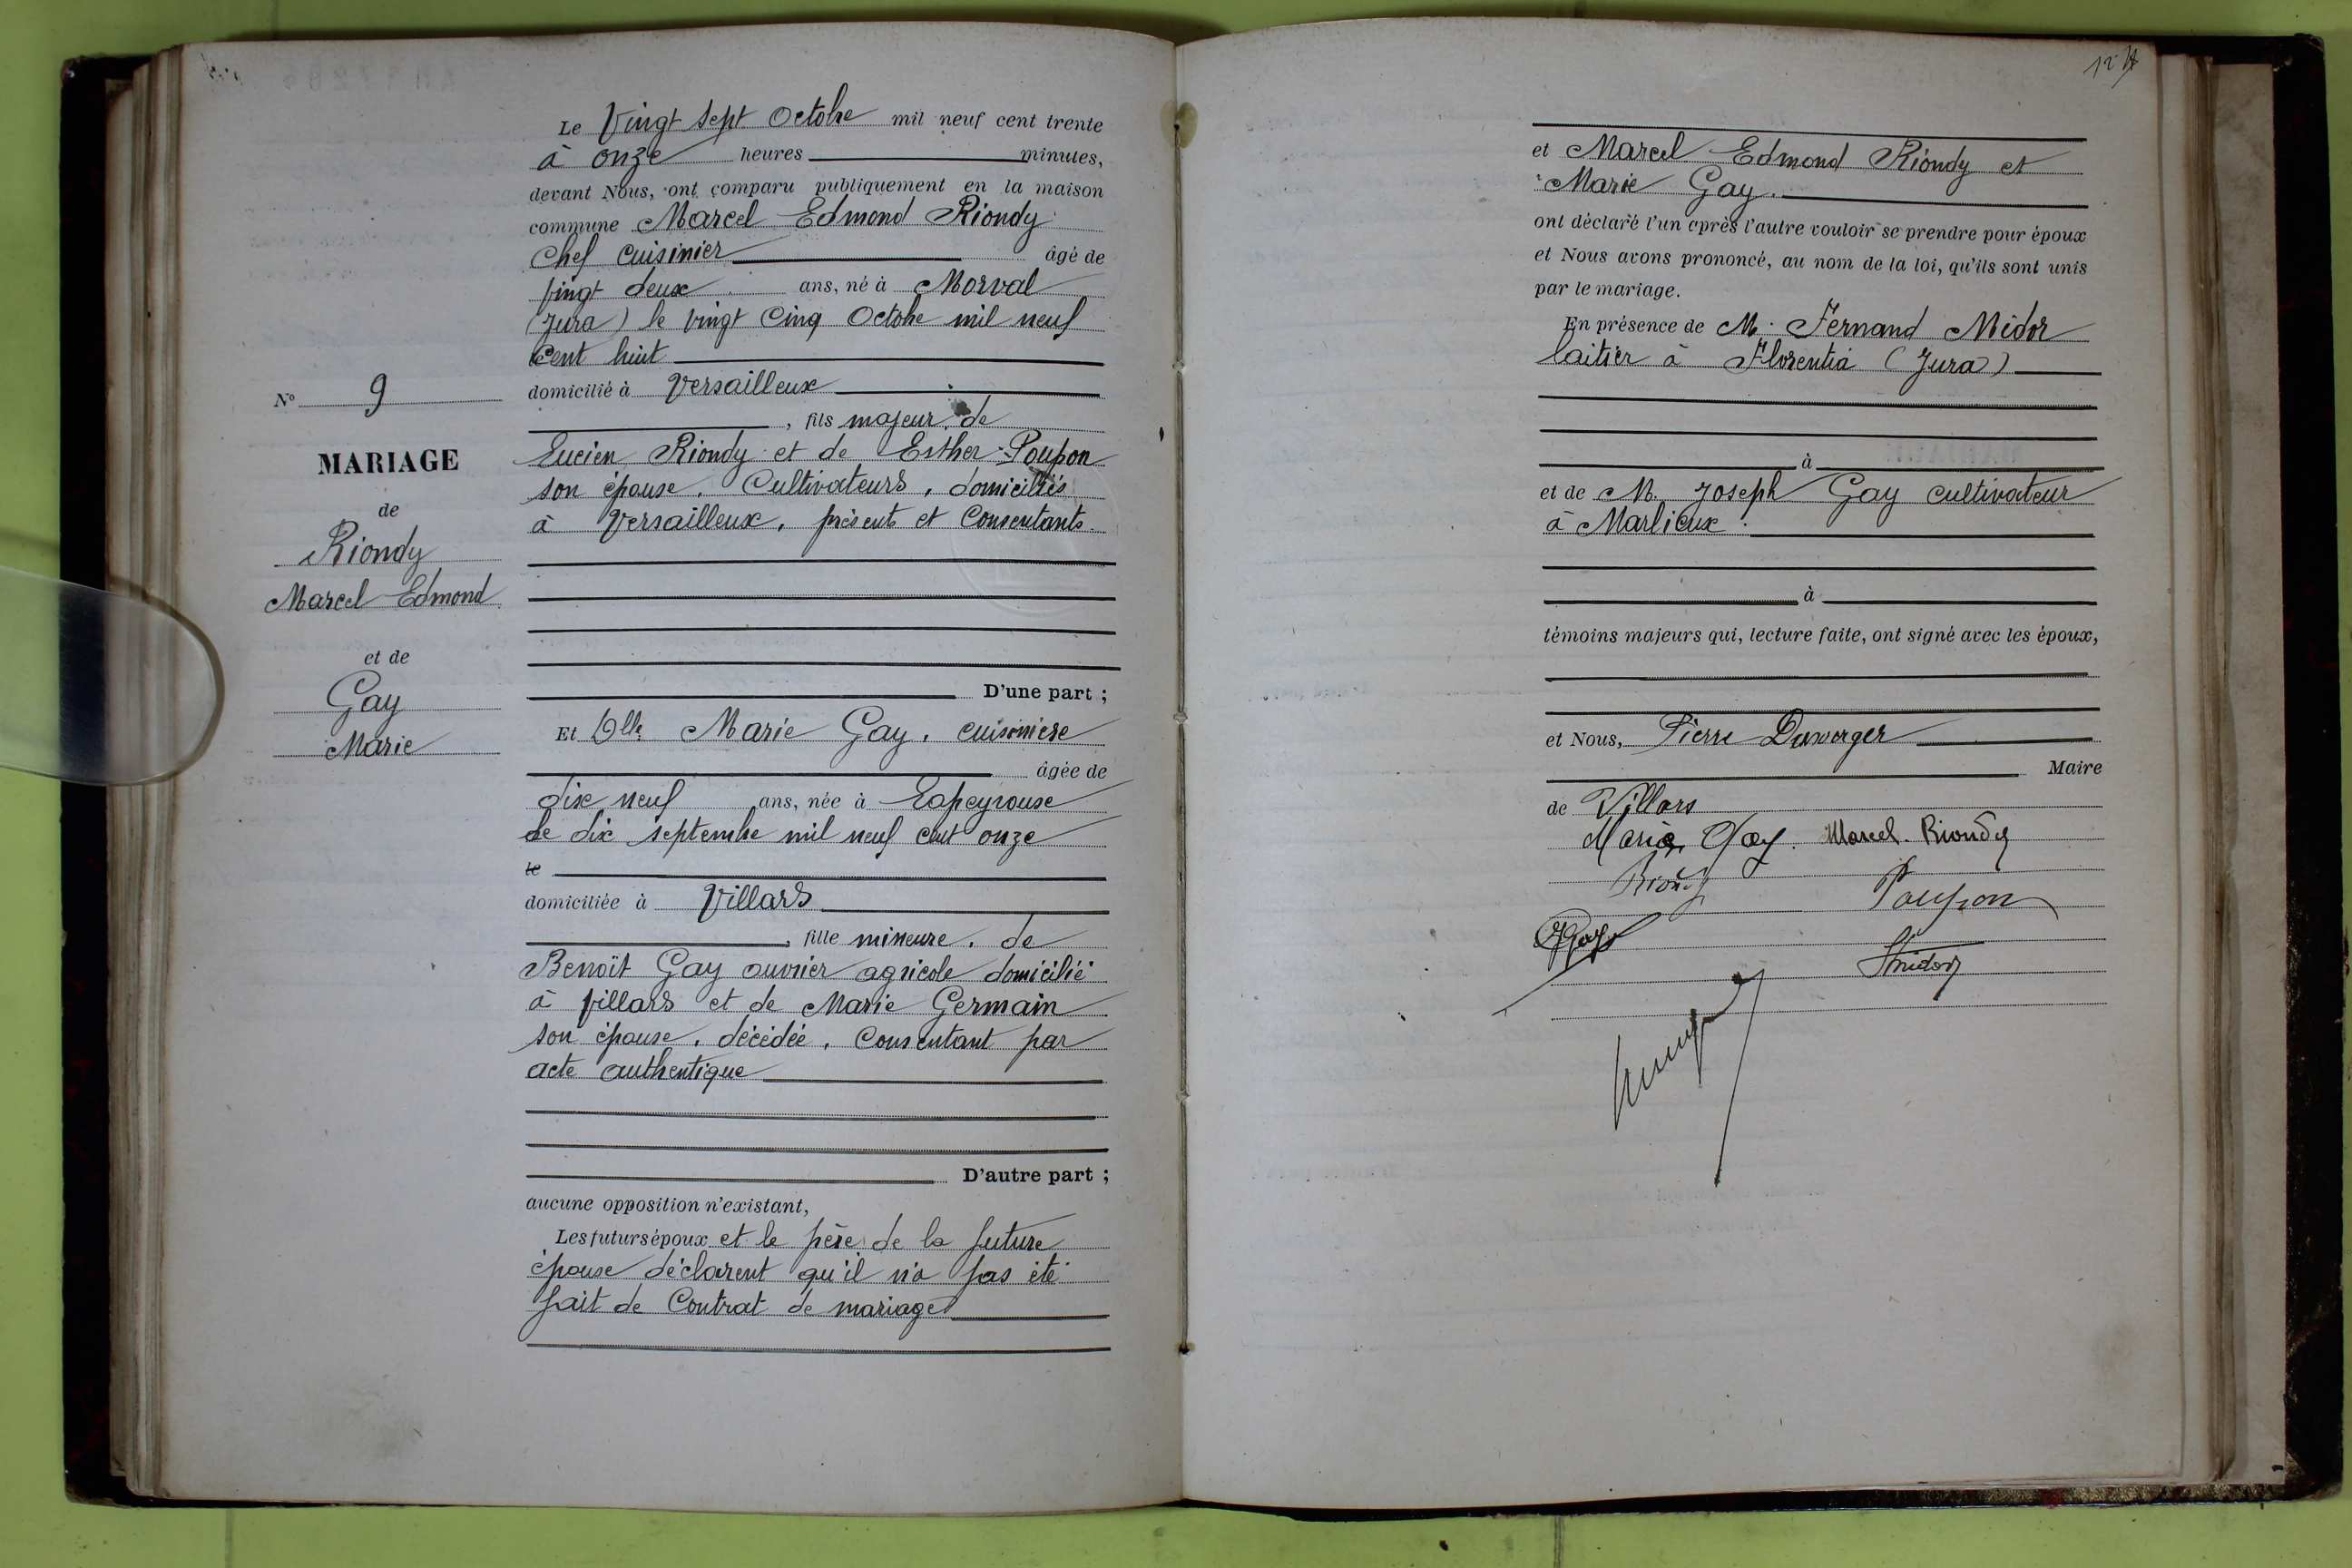 Le Vingt sept Octobre mil neuf cent trente
à onze heures minutes,
devant Nous, ont comparu publiquement en la maison
commune Marcel Edmond Riondy
Chef cuisinier âgé de
vingt deux ans, né à Morval
(Jura) le vingt cinq Octobre mil neuf
cent huit
domicilié à Versailleux
, fils majeur de
Lucien Riondy et de Esther Poupon
son épouse, Cultivateurs, domiciliés
à Versailleux, présents et Consentants.
D'une part ;
Et Dlle Marie Gay, cuisinière
âgée de
dix neuf ans, née à Lapeyrouse
le dix septembre mil neuf cent onze
le
domiciliée à Villars
, fille mineure, de
Benoît Gay ouvrier agricole domicilié
à Villars et de Marie Germain
son épouse, décédée, Consentant par
acte authentique
D'autre part ;
aucune opposition n'existant,
Les futurs époux et le père de la future
épouse déclarent qu'il n'a pas été
fait de Contrat de mariage
N° 9
MARIAGE
de
Riondy
Marcel Edmond
et de
Gay
Marie
et Marcel Edmond Riondy et
Marie Gay.
ont déclaré l'un après l'autre vouloir se prendre pour époux
et Nous avons prononcé, au nom de la loi, qu'ils sont unis
par le mariage.
En présence de M. Fernand Midor
laitier à Florentia (Jura)
à
et de M. Joseph Gay cultivateur
à Marlieux.
à
témoins majeurs qui, lecture faite, ont signé avec les époux,
et Nous, Pierre Duverger
Maire
de Villars
Marie Gay. Marcel. Riondy
Riondy Poupon
JGay Fmidor